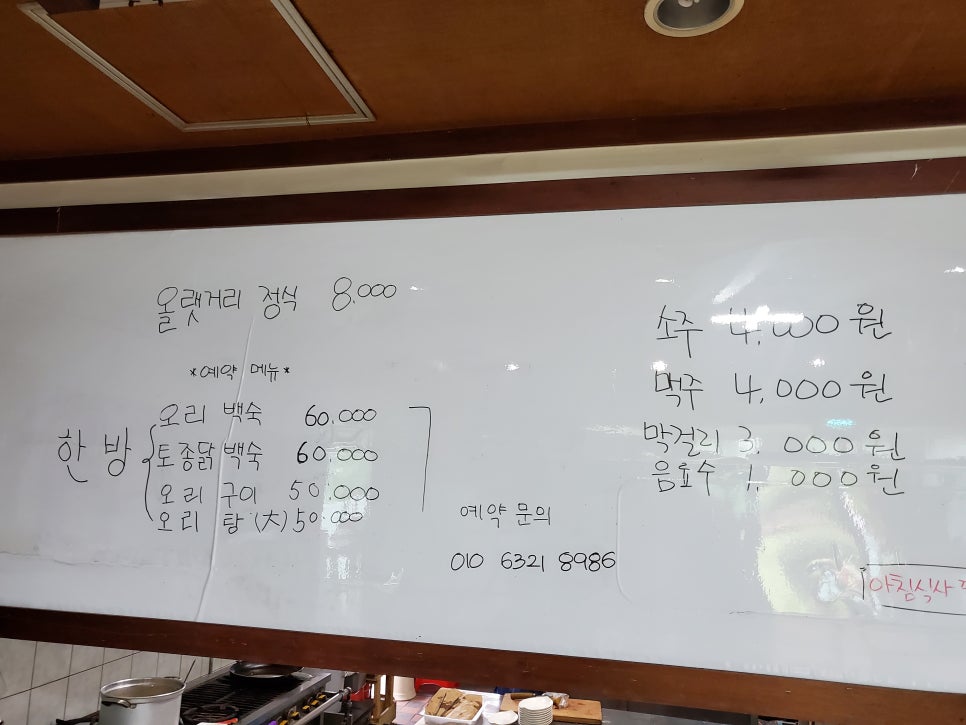 올랫거리 정식 8.000
*예약 메뉴*
한방
오리 백숙 60.000
토종닭 백숙 60.000
오리 구이 50.000
오리 탕 (大) 50.000
예약 문의
010 6321 8986
소주 4,000원
맥주 4,000원
막걸리 3.000원
음료수 1.000원
아침식사